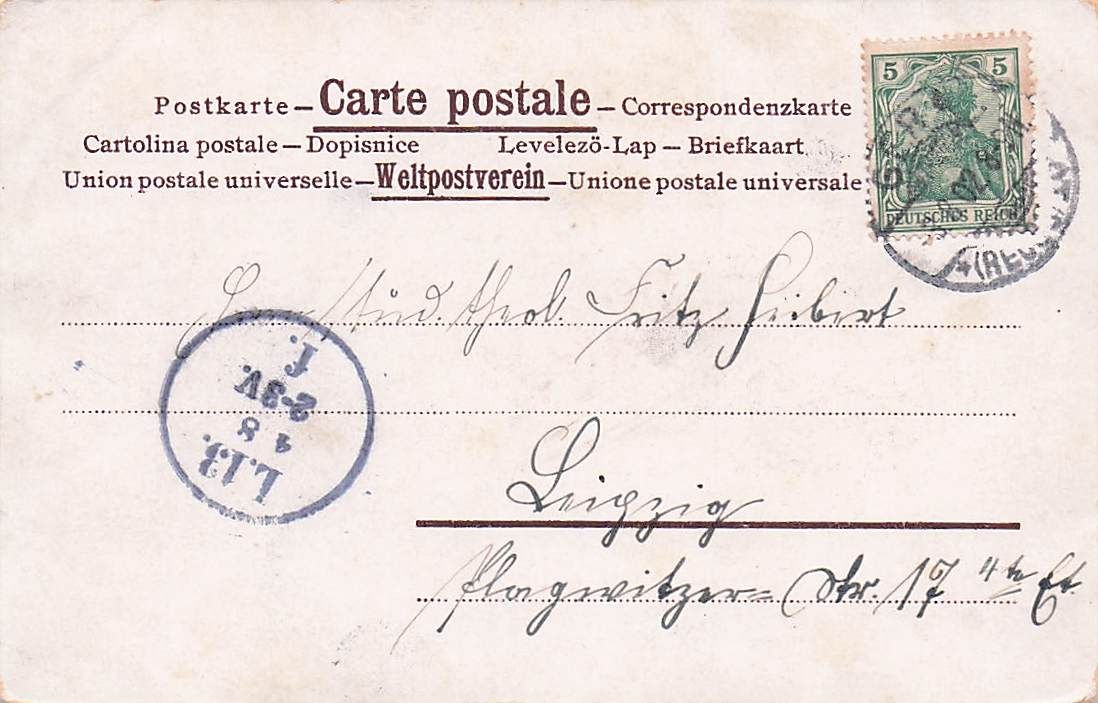 Postkarte – Carte postale – Correspondenzkarte
Cartolina postale – Dopisnice Levelező-Lap – Briefkaart
Union postale universelle – Weltpostverein – Unione postale universale
5 5
DEUTSCHES REICH
Stud. theol. Fritz Heibert
L.13.
1 8
2-3V.
f.
Leipzig
Plagwitzer- Str. 17 4te Et